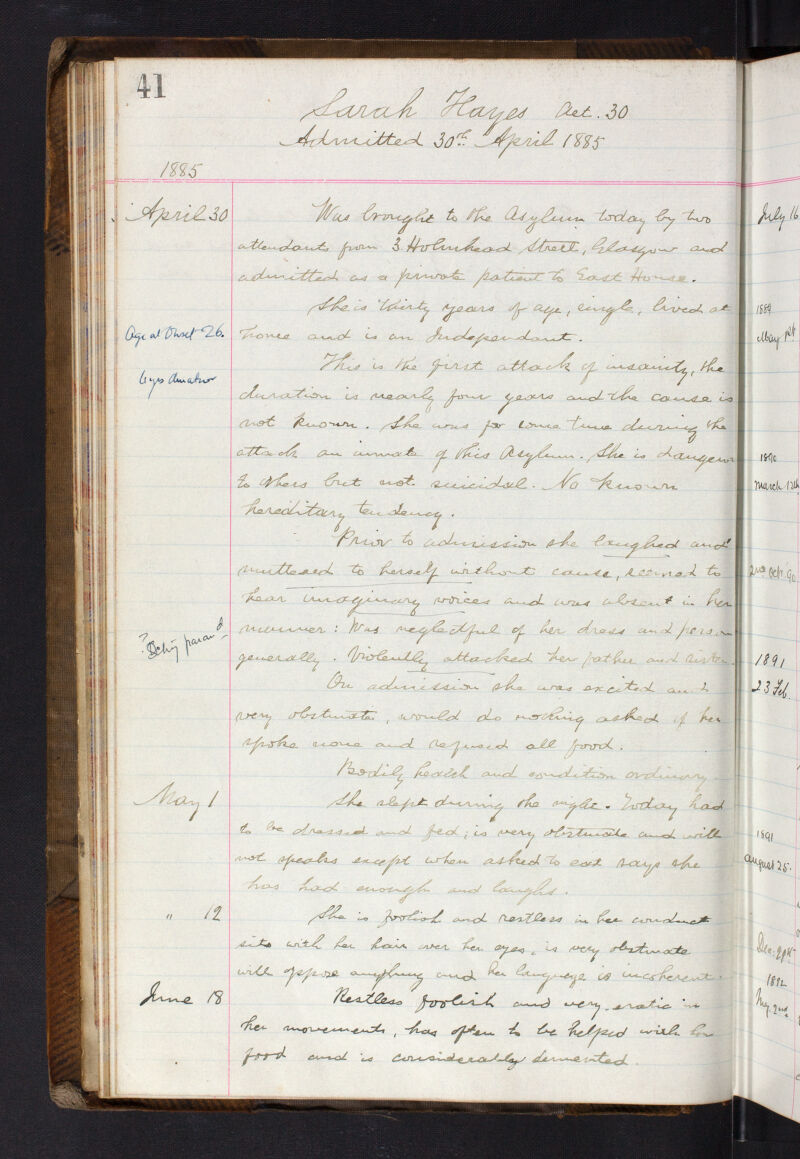 41
Sarah Hayes Aet. 30
Admitted 30th April 1885
1885
April 30
Was brought to the Asylum today by two
attendants from 3 Holmhead Street, Glasgow and
admitted as a private patient to East House.
She is thirty years of age, single, lived at
home and is an Independant.
Age at Onset 26.
This is the first attack of insanity, the
duration is nearly four years and the cause is
not known. She was for some time during the
attack an inmate of this Asylum. She is dangerous
to others but not suicidal. No known
hereditary tendency.
Prior to admission she laughed and
muttered to herself without cause, seemed to
hear imaginary voices and was absent in her
manner: Was neglectful of her dress and person
generally. Violently attacked her father and sister.
On admission she was excited and
very obstinate, would do nothing asked of her
spoke none and refused all food.
Bodily health and condition ordinary.
May 1
She slept during the night. Today had
to be dressed and fed; is very obstinate and will
not speak except when asked to eat says she
has had enough and laughs.
" 12
She is foolish and restless in her conduct
sits with her hair over her eyes, is very obstinate
will oppose anything and her language is incoherent.
June 18
Restless foolish and very eratic in
her movements, has often to be helped with her
food and is considerably demented.
July 16
1889
May
1890
March 12th
2nd Oct. 90
1891
23 Feb.
1891
August 25.
Dec.
1892
2nd